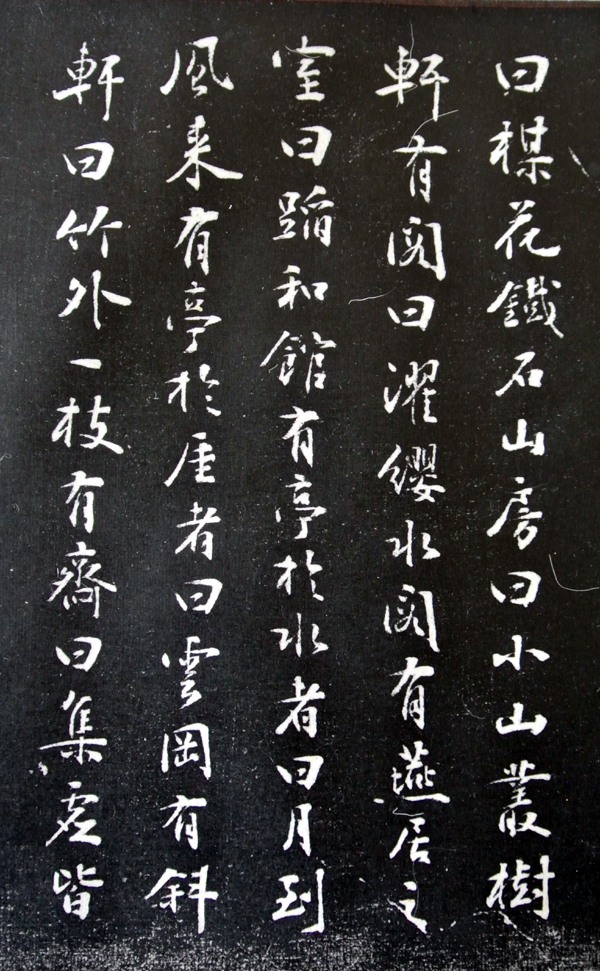 曰楳花鐵石山房曰小山叢樹
軒有閣曰濯纓水閣有燕居之
室曰蹈和館有亭於水者曰月到
風来有亭於厓者曰雲岡有斜
軒曰竹外一枝有齋曰集虛皆